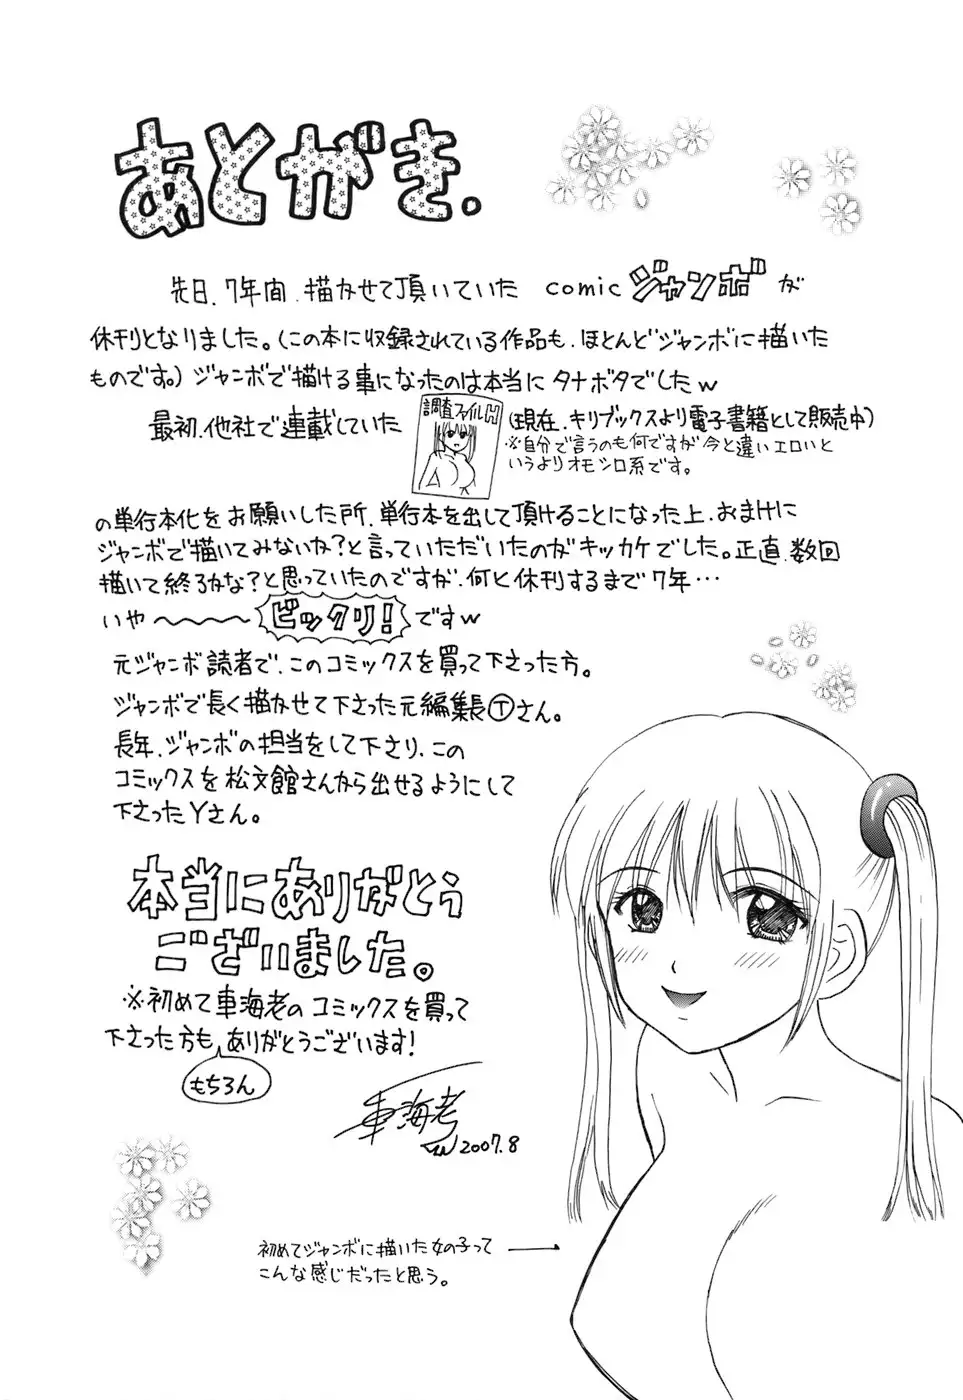 あとがき.
先日、7年間、描かせて頂いていた comic ジャンボ が
休刊となりました。(この本に収録されている作品も、ほとんどジャンボに描いた
ものです。)ジャンボで描ける事になったのは本当にタナボタでしたw
最初、他社で連載していた
調査ファイルH
(現在、キリブックスより電子書籍として販売中)
※自分で言うのも何ですが今と違いエロいと
いうよりオモシロ系です。
の単行本化をお願いした所、単行本を出して頂けることになった上、おまけに
ジャンボで描いてみないか?と言っていただいたのがキッカケでした。正直、数回
描いて終るかな?と思っていたのですが、何と休刊するまで7年…
いや〜〜〜〜ビックリ!ですw
元ジャンボ読者で、このコミックスを買って下さった方。
ジャンボで長く描かせて下さった元編集長Ⓣさん。
長年、ジャンボの担当をして下さり、この
コミックスを松文館さんから出せるようにして
下さったYさん。
本当にありがとう
ございました。
※初めて車海老のコミックスを買って
下さった方も、ありがとうございます!
もちろん
車海老
2007.8
初めてジャンボに描いた女の子って
こんな感じだったと思う。